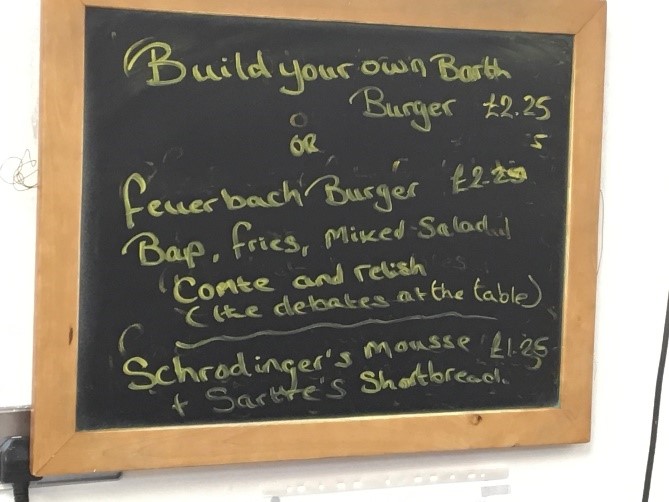 Build your own Barth
Burger £2.25
OR
Feuerbach Burger £2.25
Bap, fries, Mixed Salad
Comte and relish
(like debates at the table)
Schrodinger's mousse £1.25
+ Sartre's Shortbread.